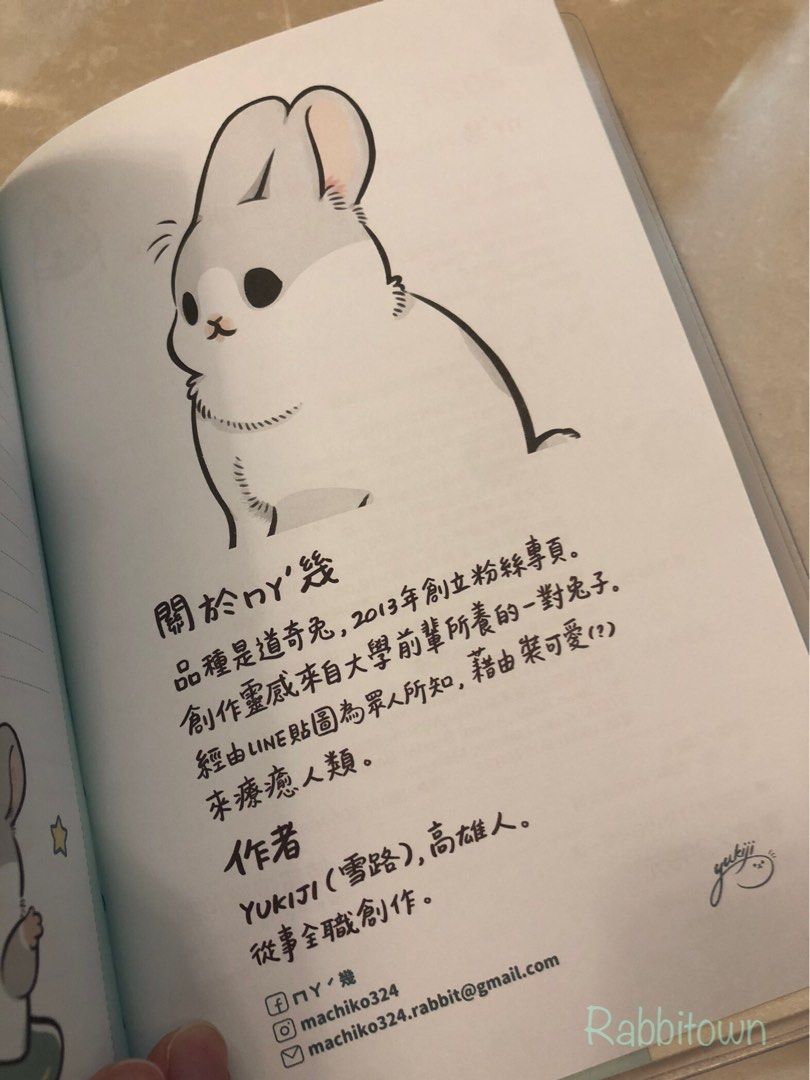 關於ㄇㄚˊ幾
品種是道奇兔，2013年創立粉絲專頁。
創作靈感來自大學前輩所養的一對兔子。
經由LINE貼圖為眾人所知，藉由裝可愛(?)
來療癒人類。
作者
YUKIJI(雪路)，高雄人。
從事全職創作。
yukiji
ㄇㄚˊ幾
machiko324
machiko324.rabbit@gmail.com
Rabbitown